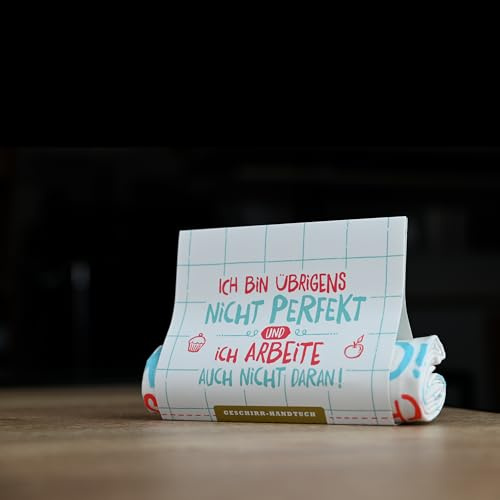 ICH BIN ÜBRIGENS
NICHT PERFEKT
UND
ICH ARBEITE
AUCH NICHT DARAN!
GESCHIRR-HANDTUCH